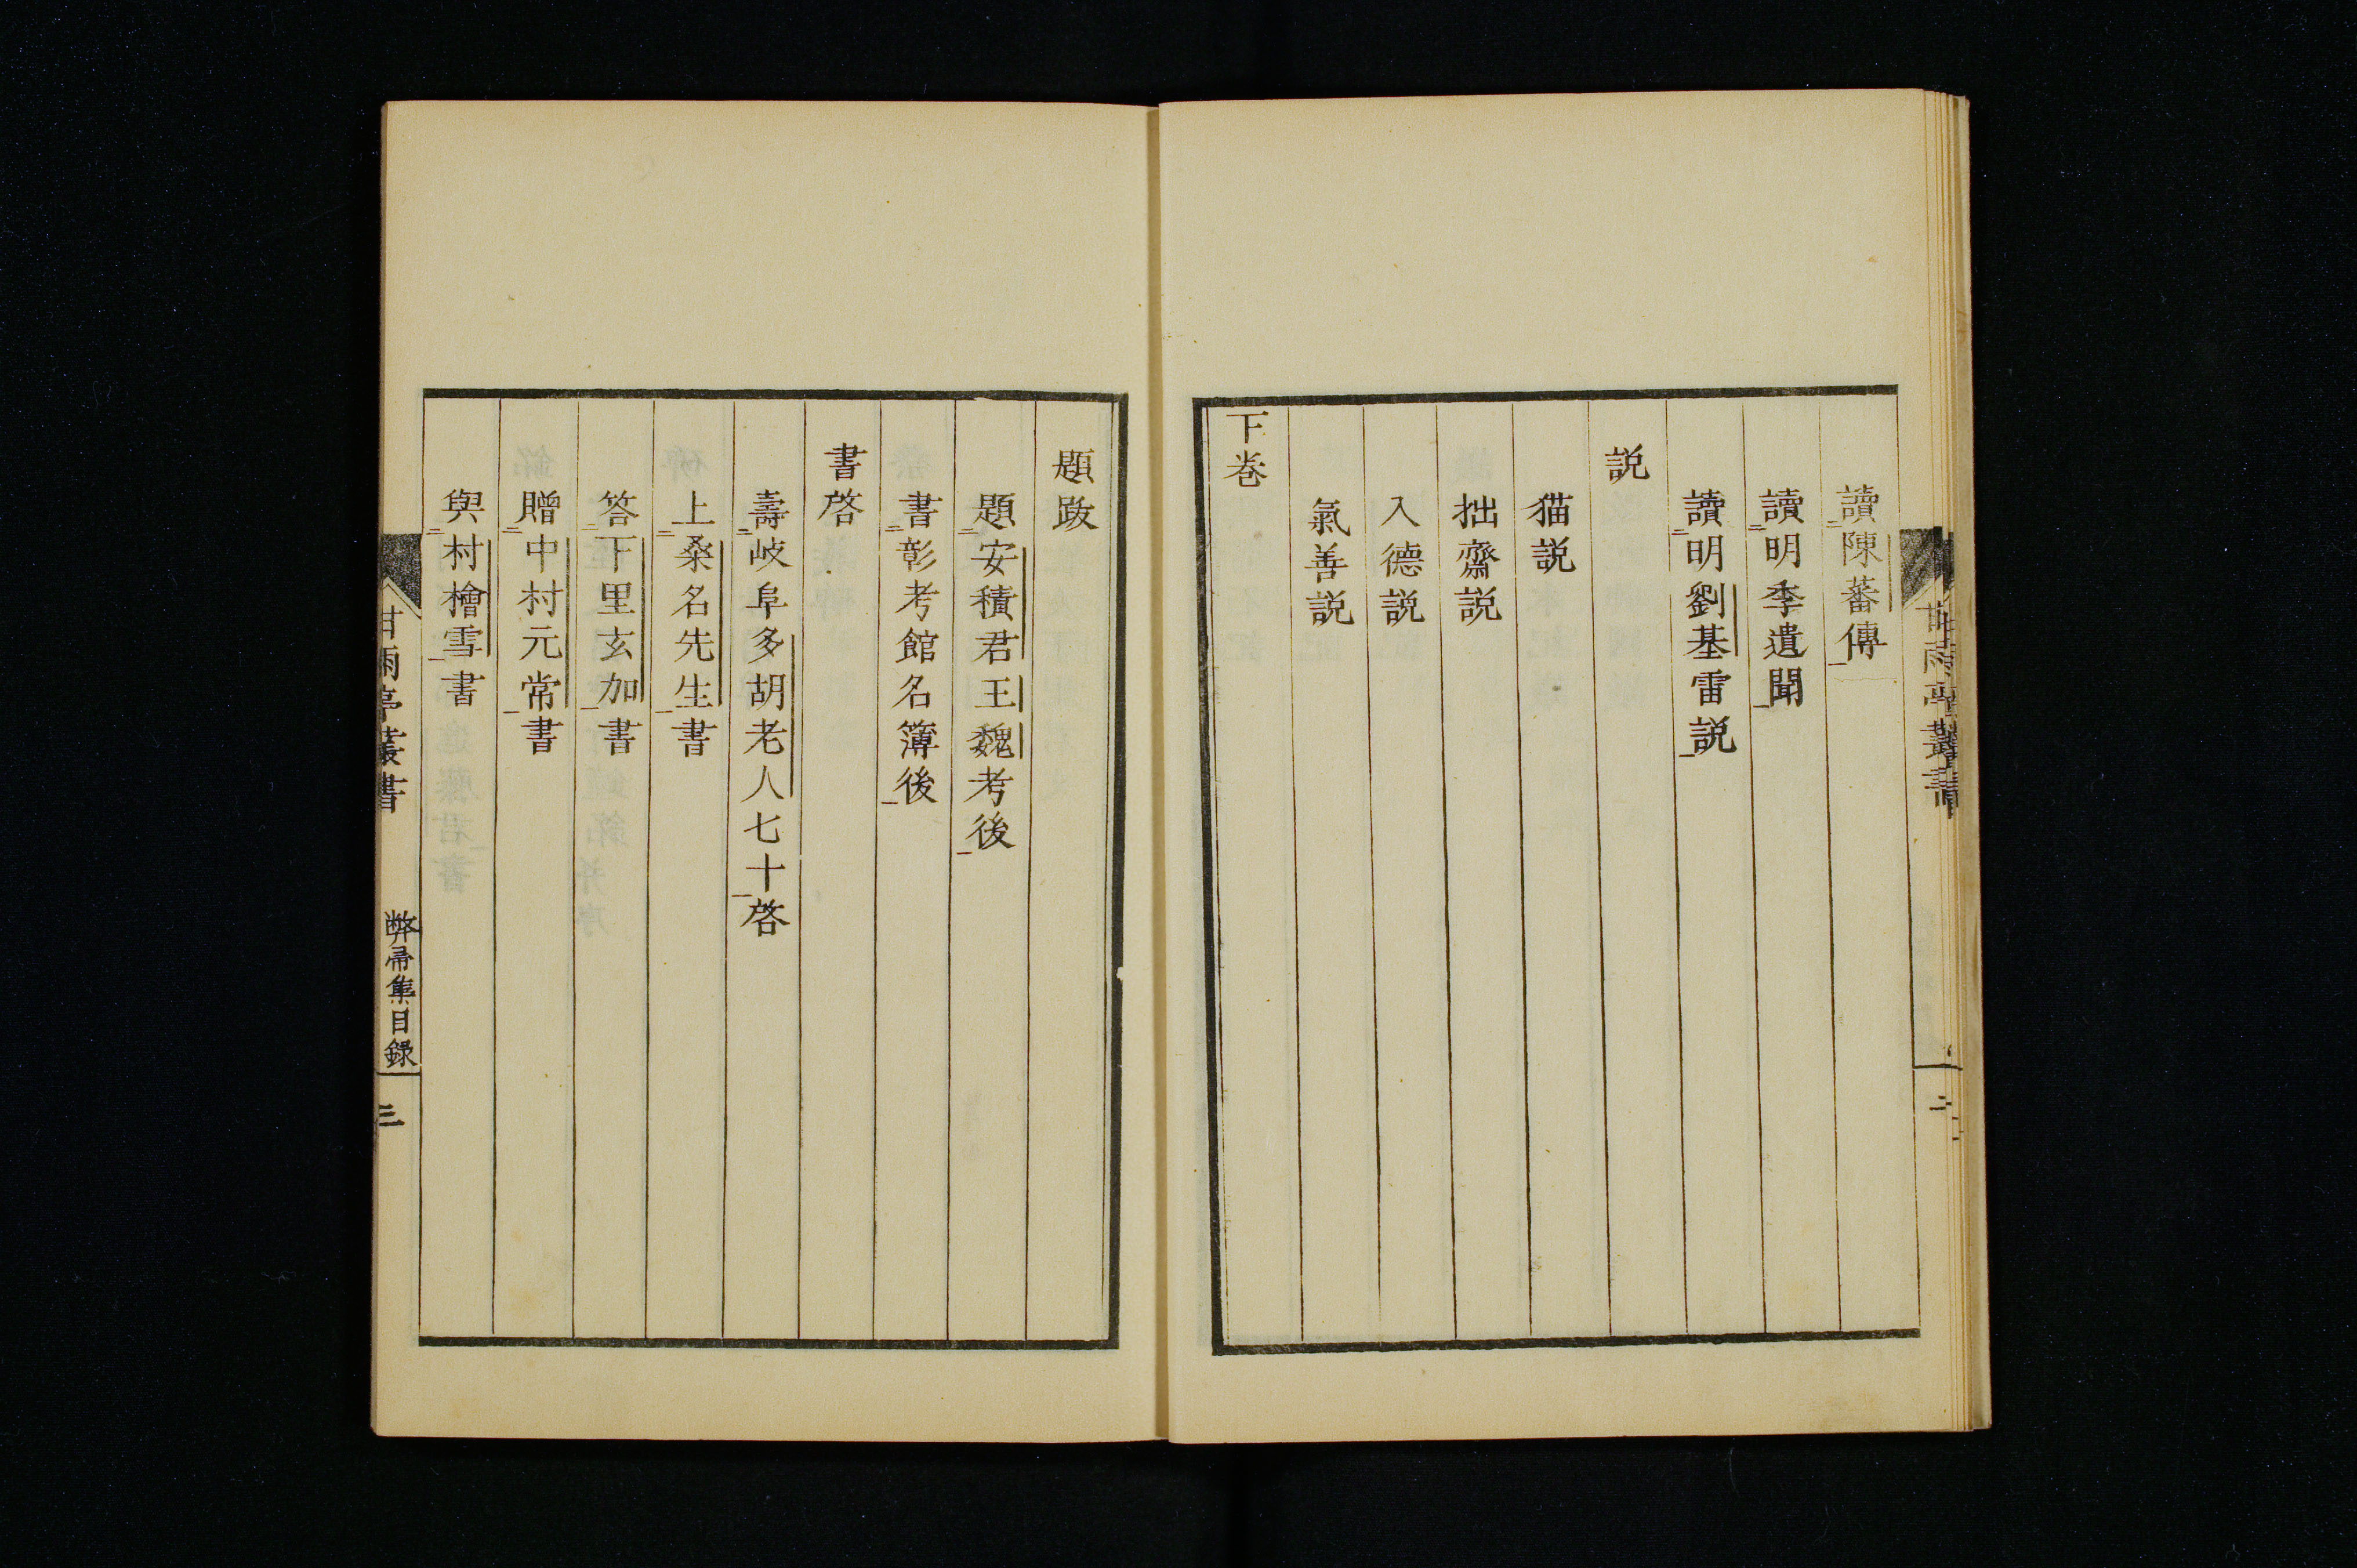 讀陳蕃傳
讀明季遺聞
讀明劉基雷説
説
猫説
拙齋説
入德説
氣善説
下卷
題跋
題安積君王魏考後
書彰考館名簿後
書啓
壽岐阜多胡老人七十啓
上桑名先生書
答下里玄加書
贈中村元常書
與村檜雪書
甘雨亭叢書
弊帚集目録
三